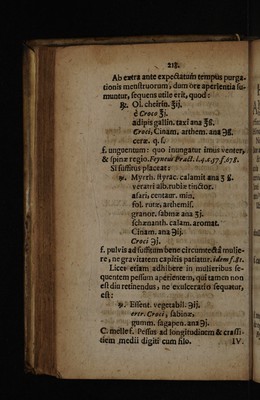 218.
Ab extra ante expectatum tempus purga-
tionis menstruorum, dum ore aperientia su-
muntur, sequens utile erit, quod:
℞. Ol. cheirin. ℥ij.
è Croco ʒj.
adipis gallin. taxi ana ℥ß.
Croci, Cinam. arthem. ana ℈ß.
ceræ. q. s.
f. unguentum: quo inungatur imus venter,
& spinæ regio. Feyneus Pract. l.4.c.37.f.678.
Si suffitus placeat:
℞. Myrrh. styrac. calamit ana ʒ ß.
veratri alb. rubiæ tinctor.
asari. centaur. min.
fol. rutæ, arthemis.
granor. sabinæ ana ʒj.
schænanth. calam. aromat.
Cinam. ana ℈ij.
Croci ℈j.
f. pulvis ad suffitum bene circumtectâ mulie-
re, ne gravitatem capitis patiatur. idem f.81.
Licet etiam adhibere in mulieribus se-
quentem pessum aperientem, qui tamen non
est diu retinendus, ne exulceratio sequatur,
est:
℞. Essent. vegetabil. ℈ij.
extr. Croci, sabinæ,
gumm. sagapen. ana ℈j.
C. melle f. Pessus ad longitudinem & crassi-
tiem medii digiti cum filo.
IV.